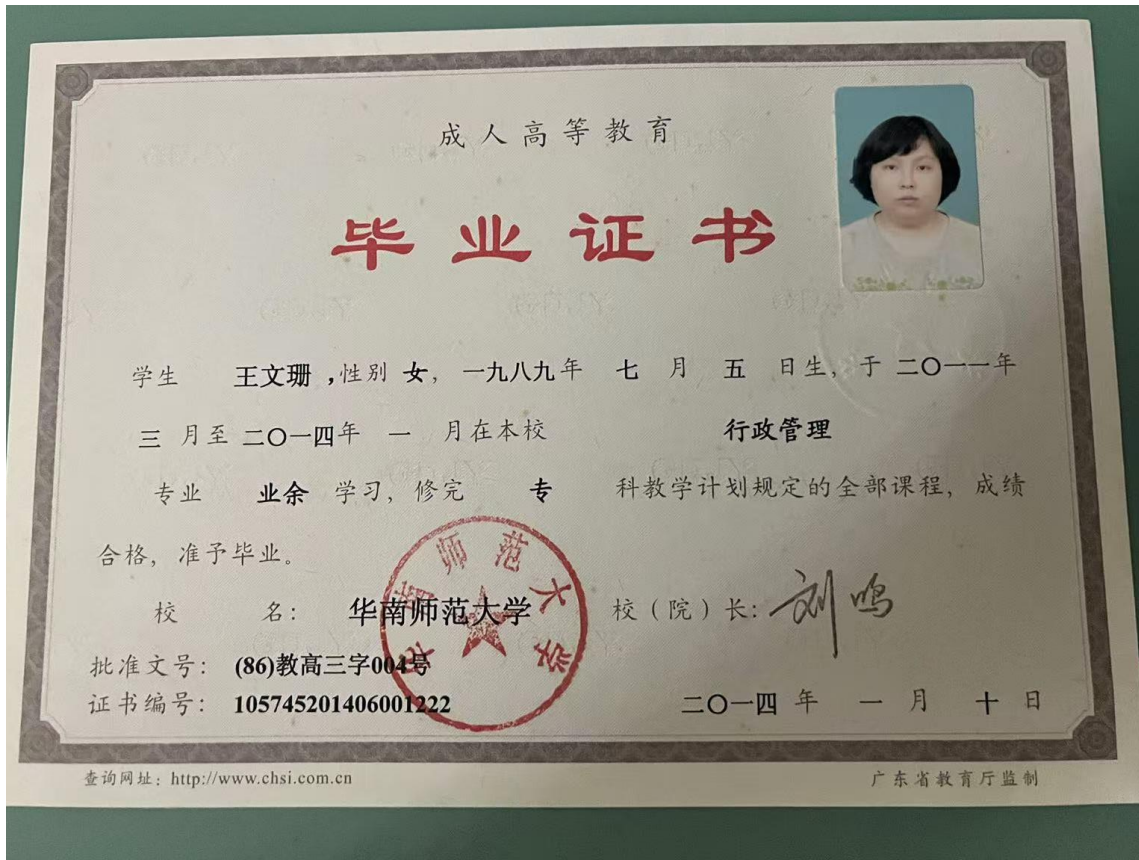 成人高等教育
毕业证书
学生 王文珊 ,性别 女, 一九八九年 七 月 五 日生, 于 二〇一一年
三 月至 二〇一四年 一 月在本校 行政管理
专业 业余 学习, 修完 专 科教学计划规定的全部课程, 成绩
合格, 准予毕业。
校 名: 华南师范大学 校(院)长: 刘鸣
华南师范大学
批准文号: (86)教高三字004号
证书编号: 105745201406001222 二〇一四 年 一 月 十 日
查询网址: http://www.chsi.com.cn 广东省教育厅监制